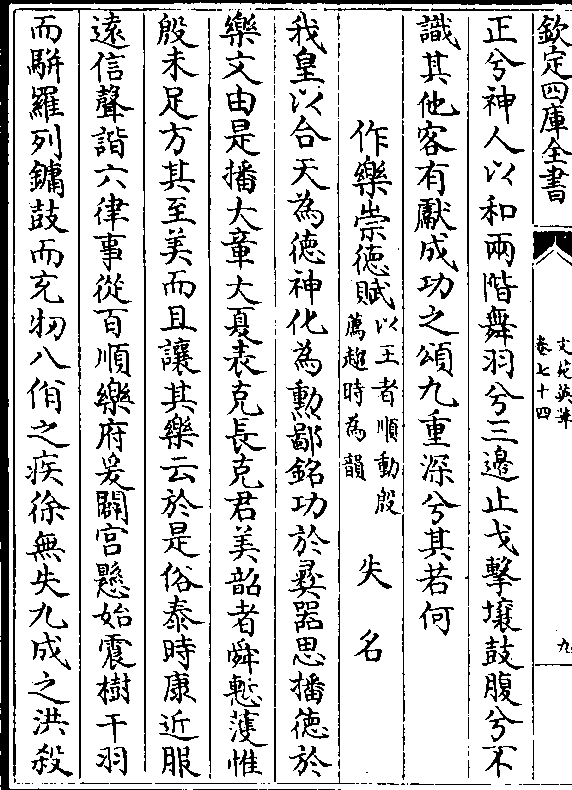 欽定四庫全書
文苑英華
卷七十四
九
正兮神人以和兩階舞羽兮三邊止戈擊壤鼓腹兮不
識其他客有獻成功之頌九重深兮其若何
作樂崇德賦以王者順動殷
薦趣時為韻
失名
我皇以合天為德神化為勲鄙銘功於彛器思播德於
樂文由是播大章大夏表克長克君美韶者舜慙濩惟
殷未足方其至美而且讓其樂云於是俗泰時康近服
逺信聲諧六律事從百順樂府爰闢宫懸始震樹干羽
而駢羅列鏞鼓而充牣八佾之疾徐無失九成之洪殺